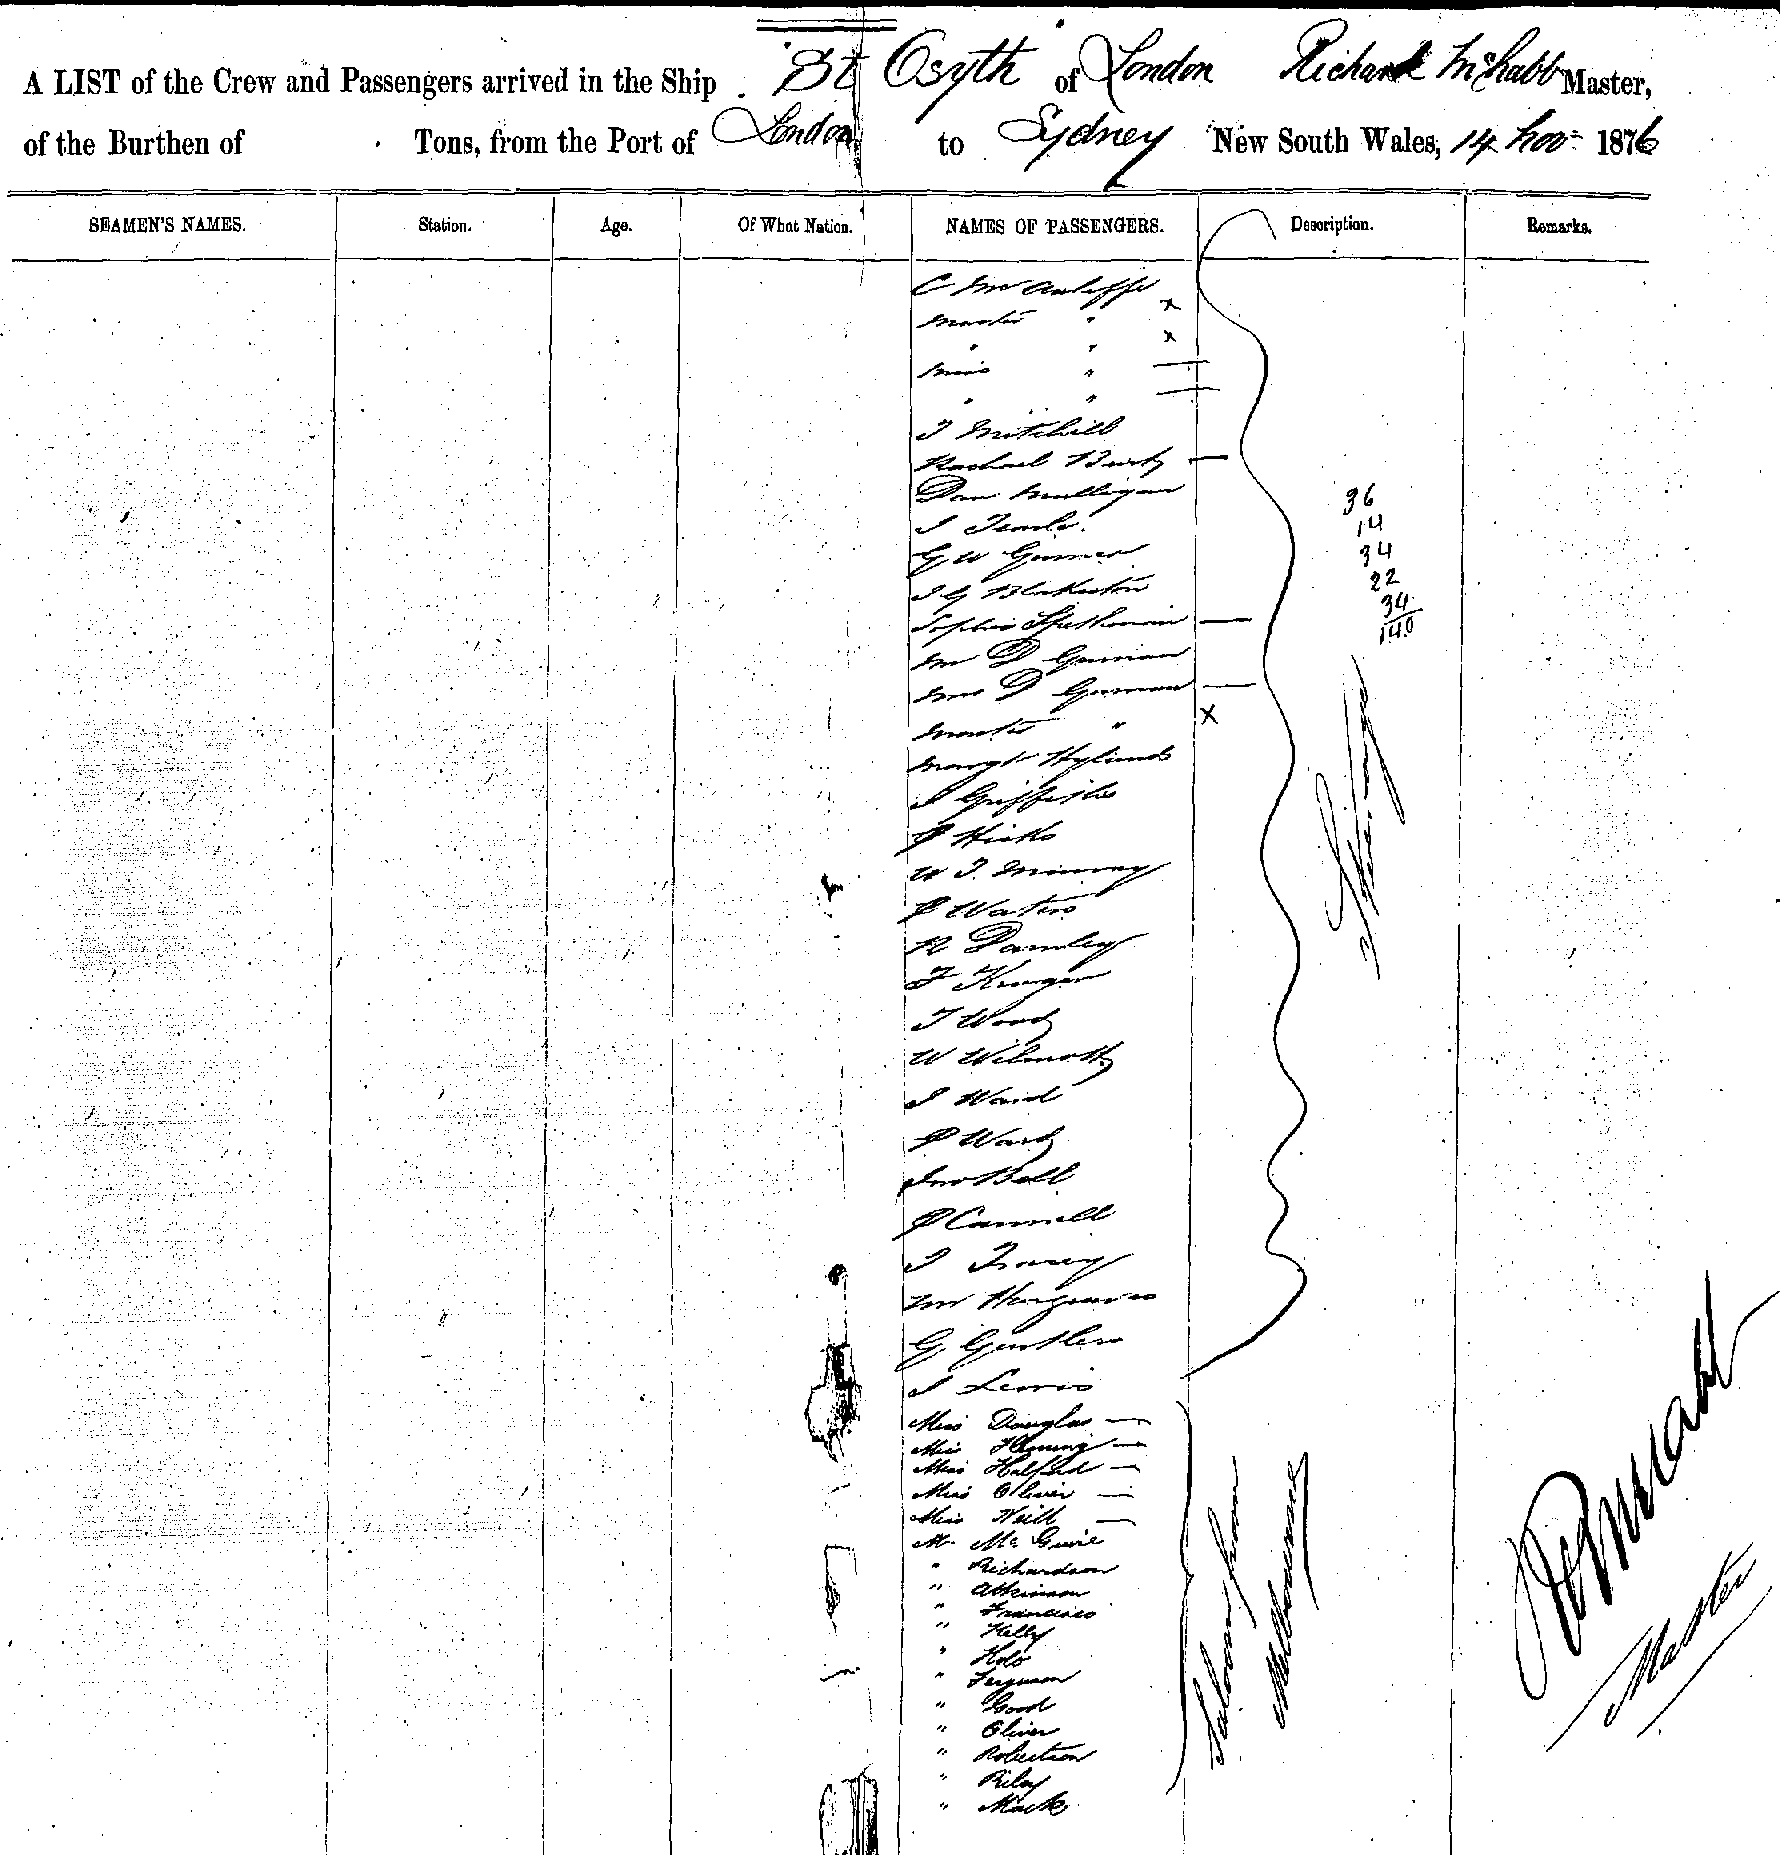 A LIST of the Crew and Passengers arrived in the Ship St Osyth of London Richard McNabb Master,
of the Burthen of Tons, from the Port of London to Sydney New South Wales, 14 Nov 1876
SEAMEN'S NAMES. Station. Age. Of What Nation. NAMES OF PASSENGERS. Description. Remarks.
C McAuliffe
Master " x
" " x
Miss " —
" " —
J Mitchell
Rachael —
Dan Mulligan
36
J
14
G W
34
J G Blakiston
22
Sophia —
34
140
Mr D Gorman
Mrs D Gorman —
Master " x
Margt Hylands
J Griffiths
P Hicks
W J Murray
P Waters
R Darnley
F Kruger
J Wood
W Wilmott
J Ward
P Ward
Jno Bell
P Cannell
J
M Hargraves
G
J Lewis
Steerage
Miss Douglas —
Miss Fleming —
Miss Halford —
Miss Oliver —
Miss Neill —
Mr McGuire
" Richardson
" Atkinson
" Francisco
" Kelly
" Holt
" Ferguson
" Good
" Oliver
" Robertson
" Riley
" Mack
Saloon from
Melbourne
R McNabb
Master